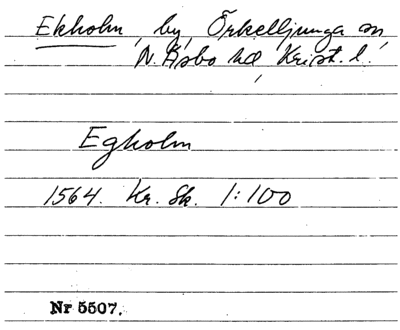 Ekholm, by, Örkelljunga sn,
N. Åsbo hd, Krist. l.
Egholm
1564. Kr. Sk. 1:100
Nr 5507.